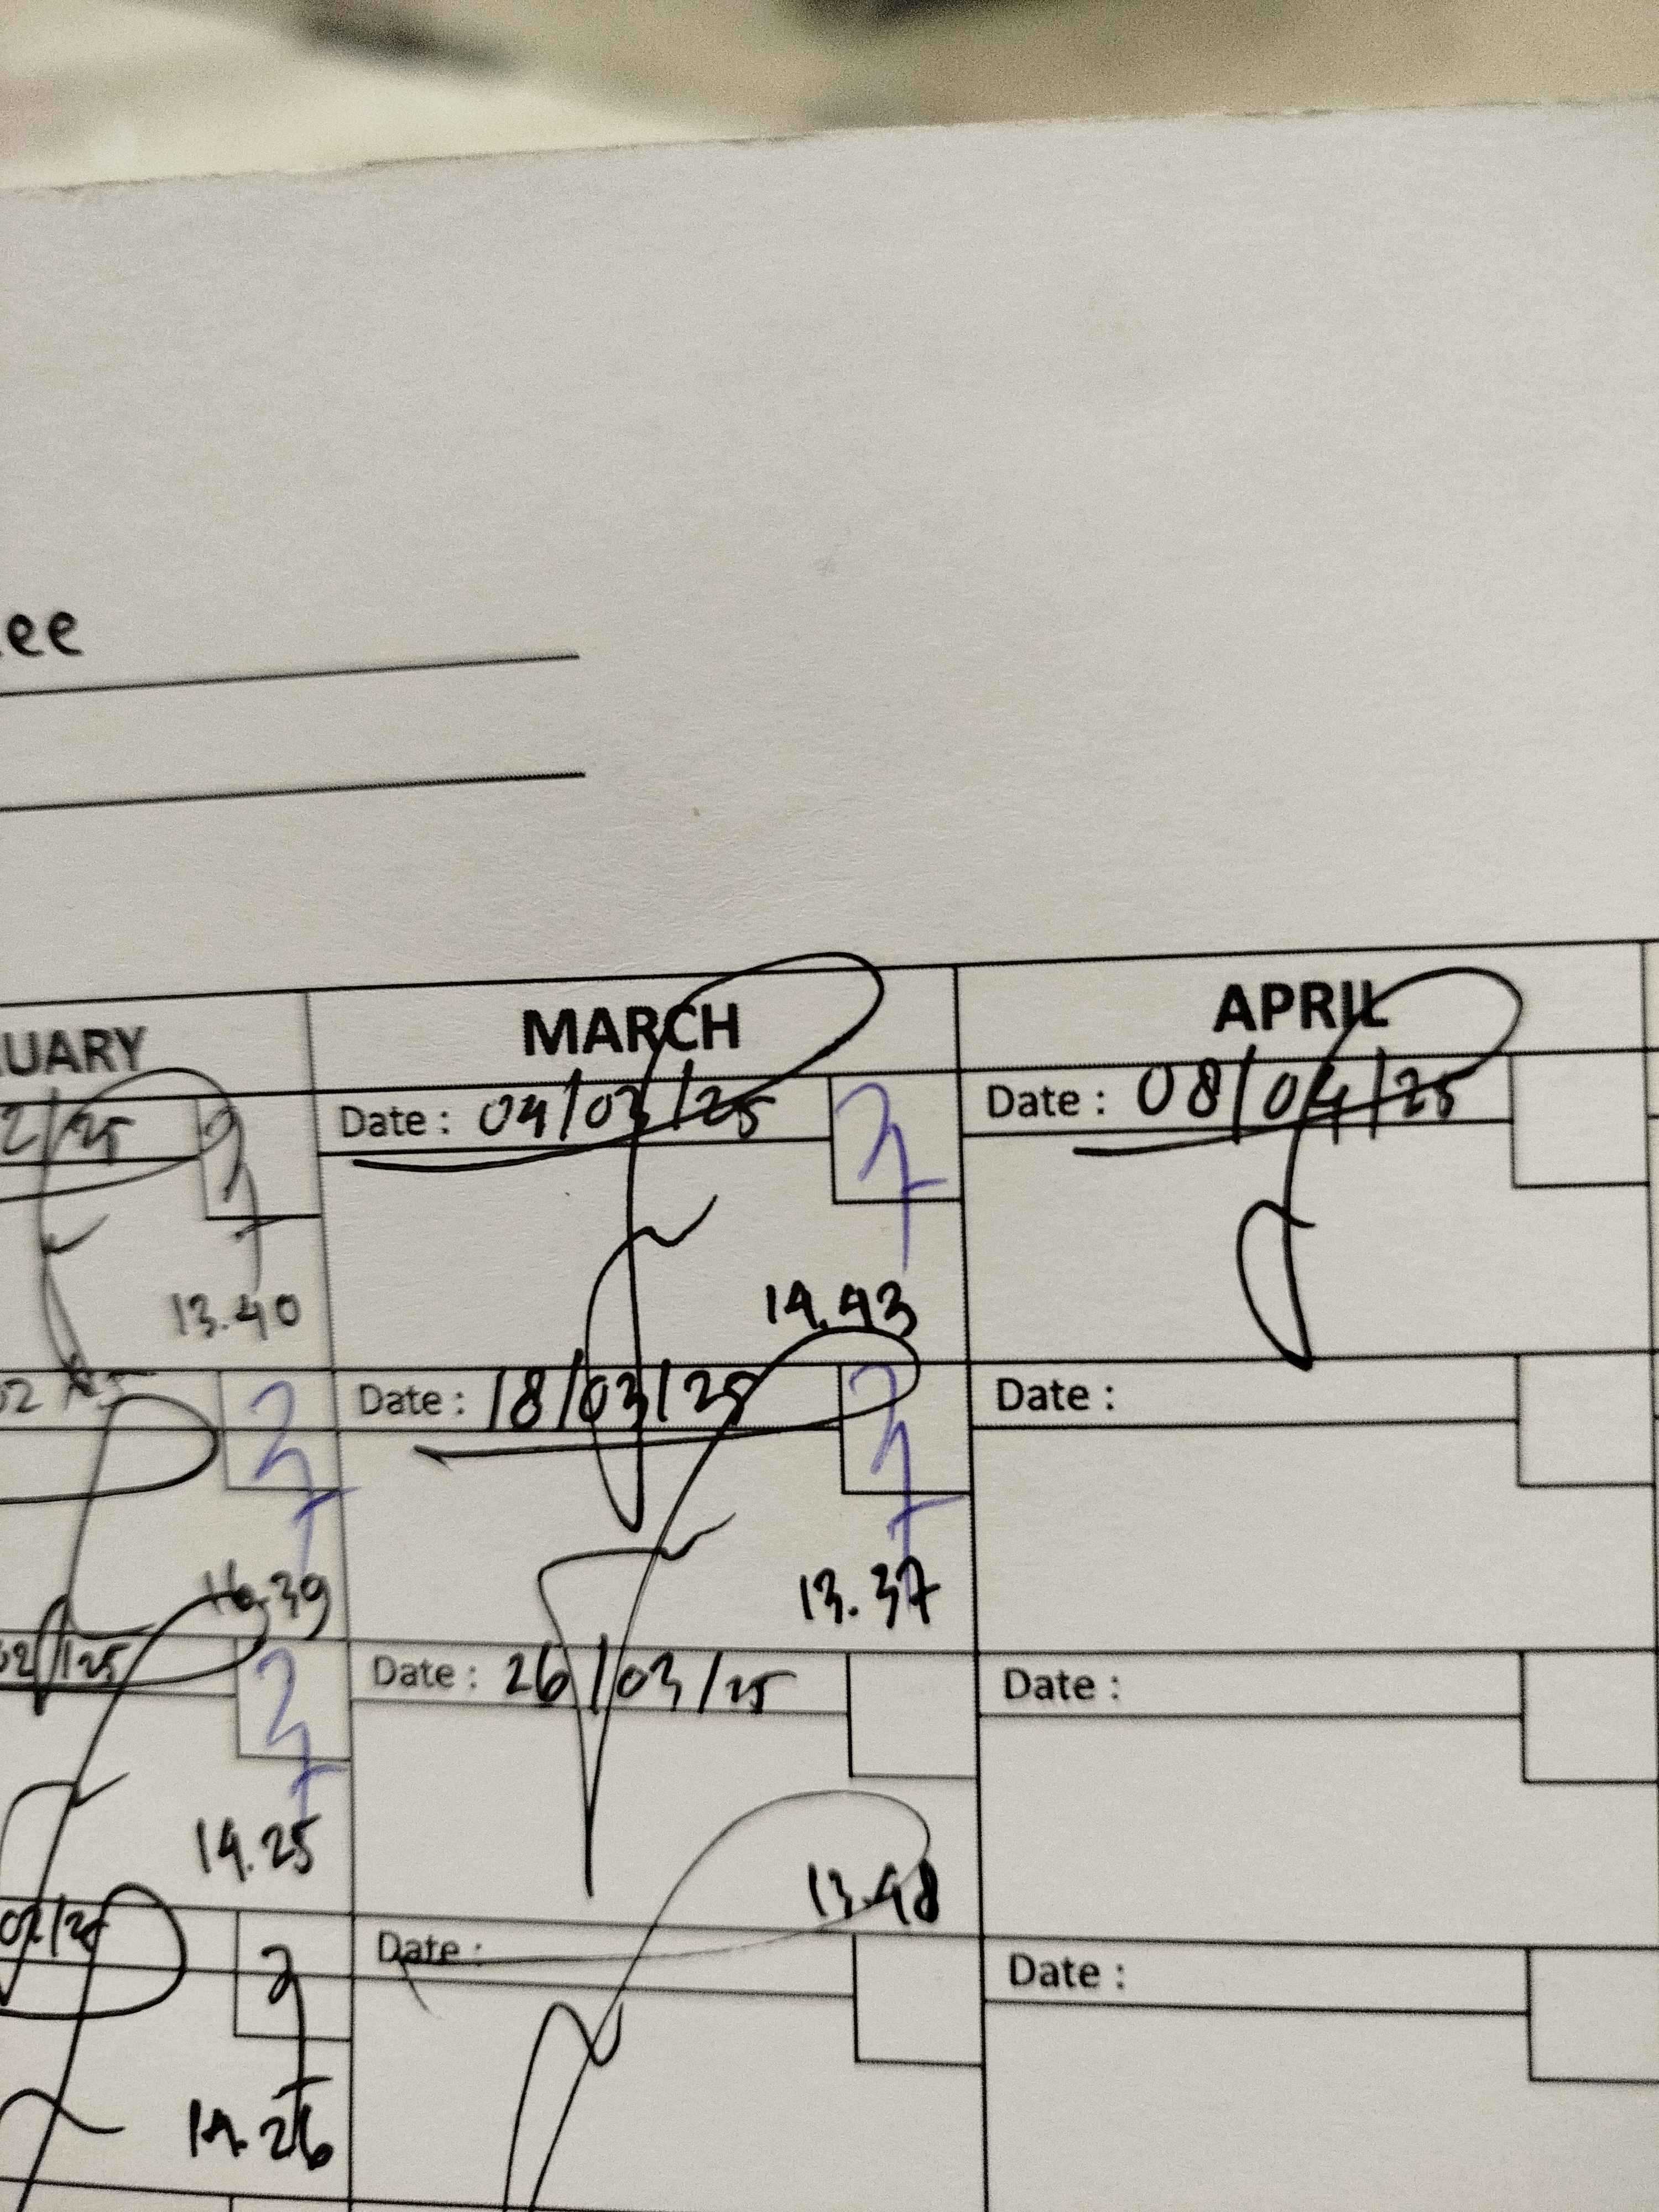 ee
UARY MARCH APRIL
2/25 Date : 04/03/25 Date : 08/04/25
13.40 14.43
02 25 Date : 18/03/25 Date :
16.39 13.37
02/25 Date : 26/03/25 Date :
14.25 13.48
02/25 Date : Date :
14.26